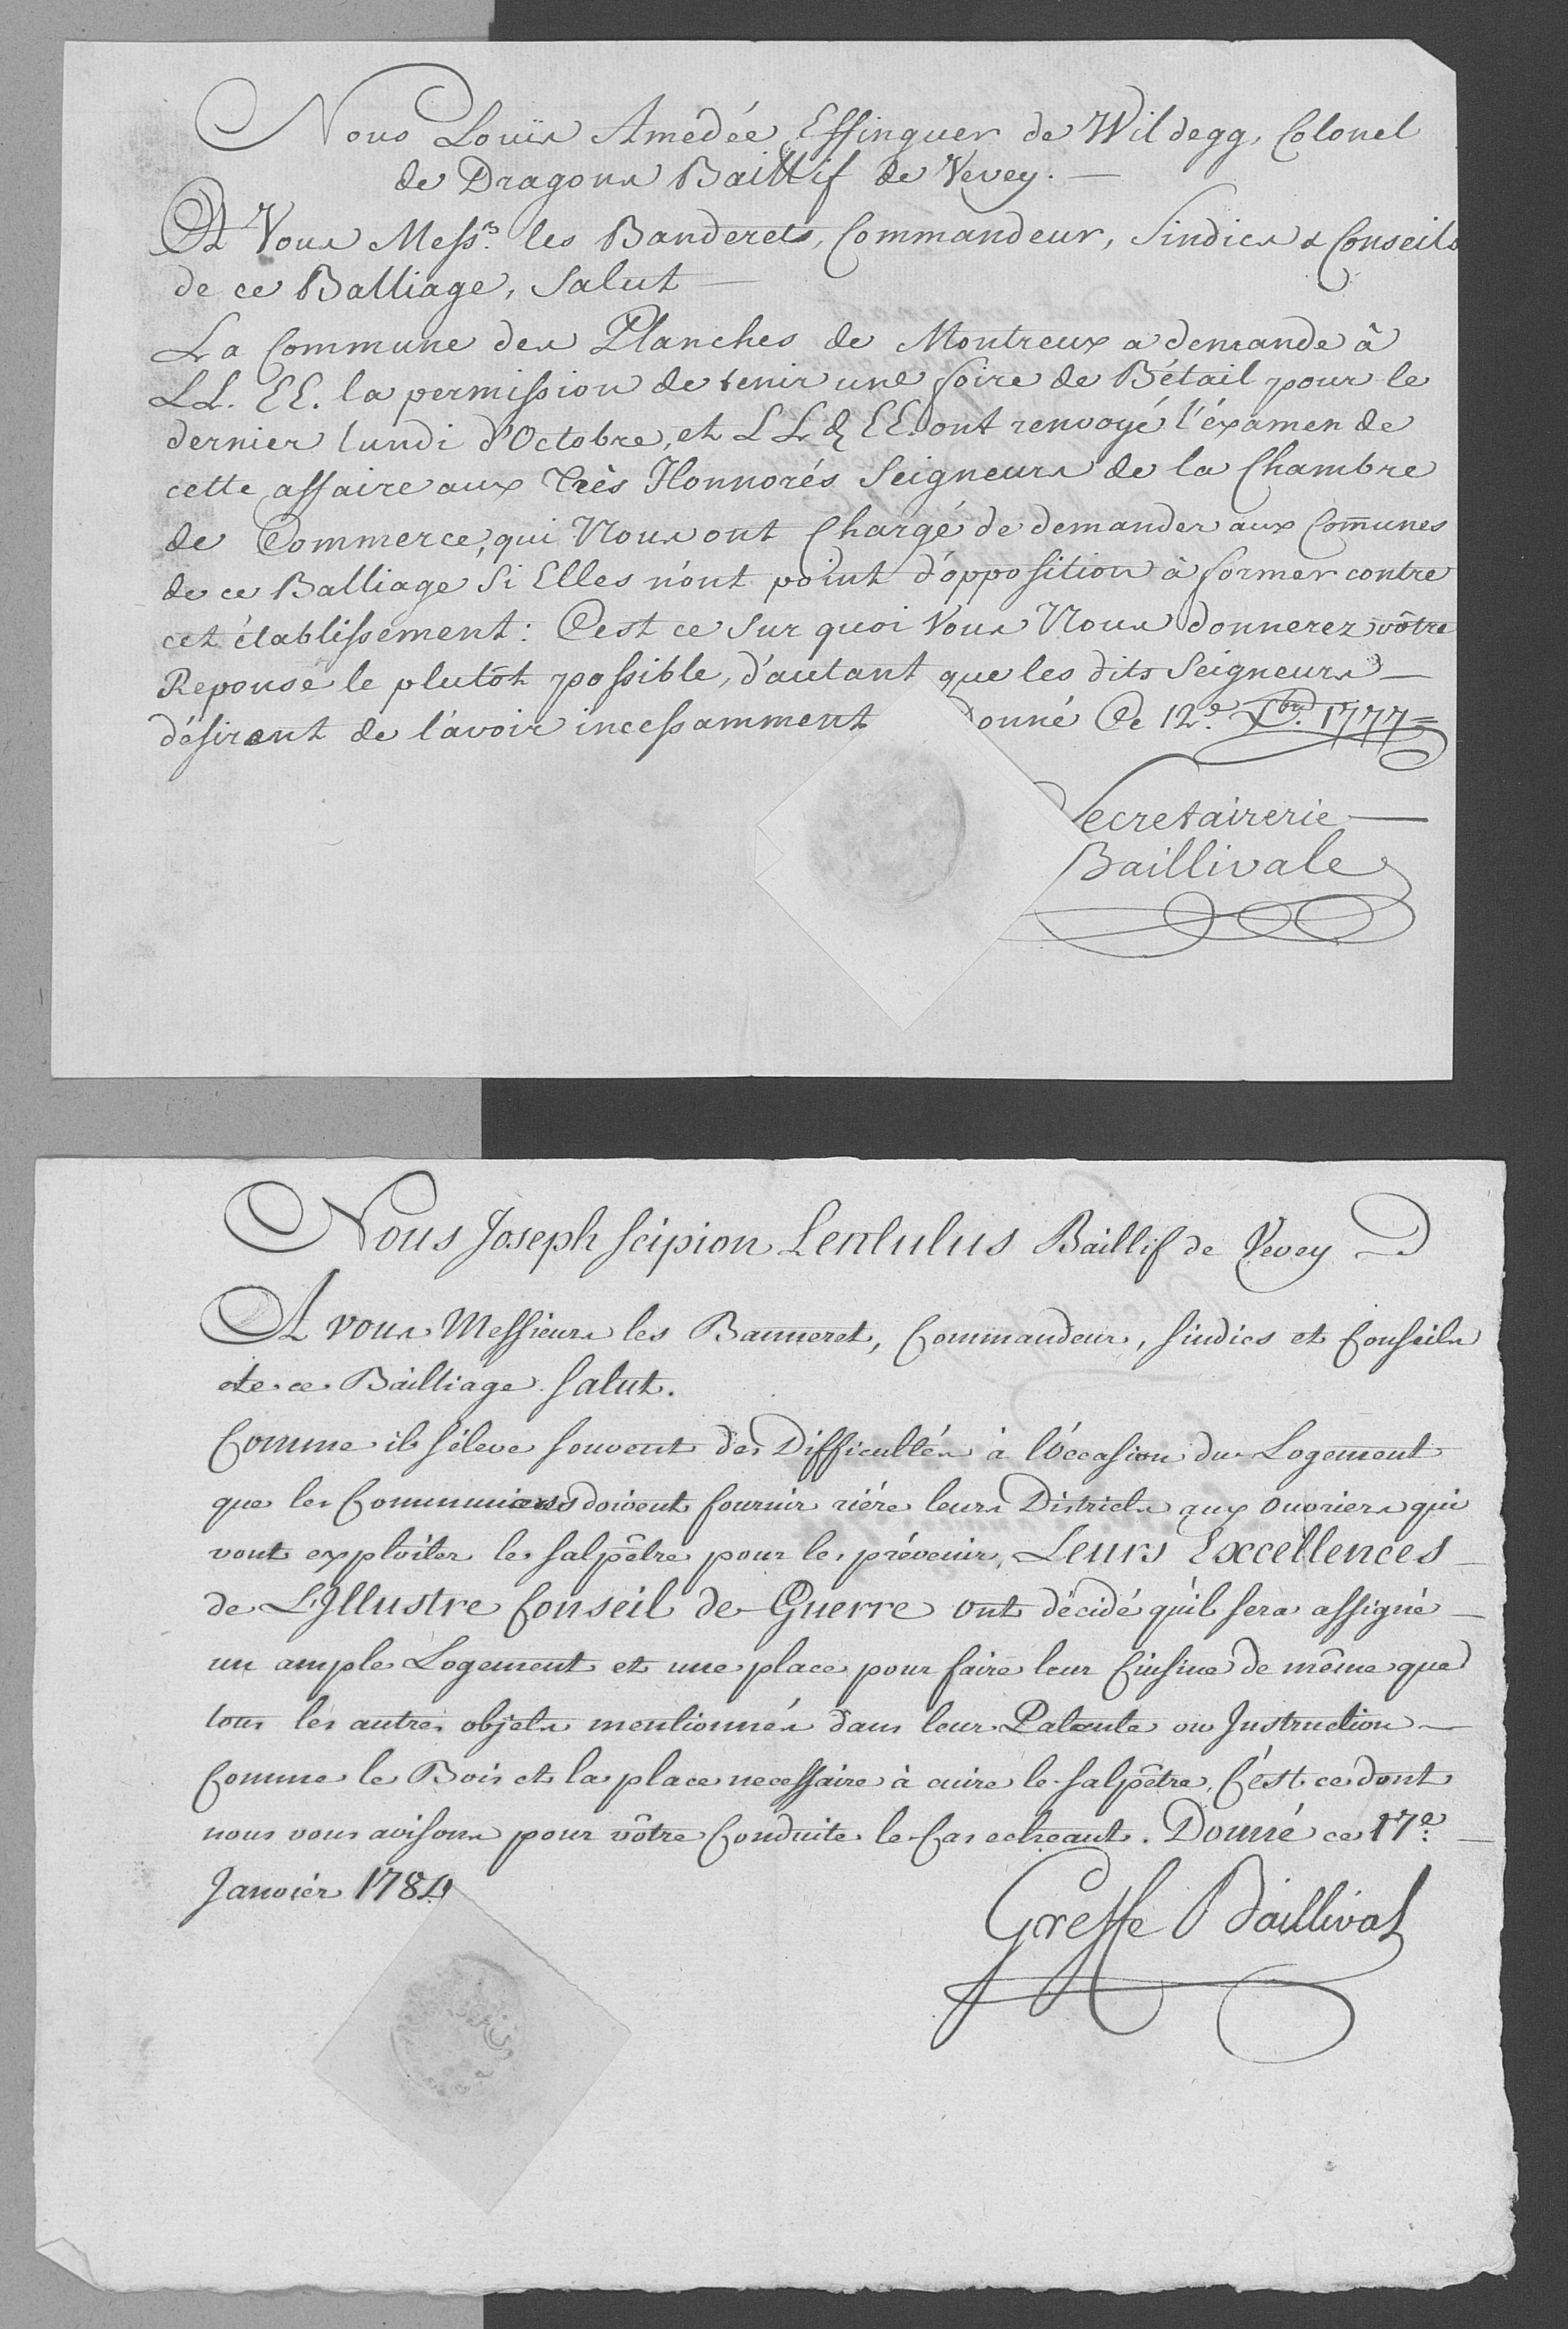 Nous Louis Amédée Effinguer de Wildegg, Colonel
de Dragons Baillif de Vevey.
A Vous Mess.rs les Banderets, Commandeur, Sindics & Conseils
de ce Balliage, Salut
La Commune des Planches de Montreux a demandé â
LL. EE. la permission de tenir une foire de Bétail pour le
dernier lundi d'Octobre, et LL. EE. ont renvoyé l'éxamen de
cette affaire aux Très Honnorés Seigneurs de la Chambre
de Commerce, qui Nous ont Chargé de demander aux Com̄unes
de ce Balliage Si Elles n'ont point d'opposition à former contre
cet établissement : C'est ce Sur quoi Vous Nous donnerez vôtre
Reponse le plutôt possible, d'autant que les dits Seigneurs
désirent de l'avoir incessamment Donné Ce 12.e Xbre. 1777
Secretairerie
Baillivale
Nous Joseph Scipion Lentulus Baillif de Vevey
A vous Messieurs les Banneret, Commandeur, Sindics et Conseils
de ce Bailliage Salut.
Comme il s'éleve souvent des Difficultés à l'óccasion du Logement
que les Communiers doivent fournir riére leurs Districts aux ouvriers qui
vont exploiter le salpêtre pour les prévenir, Leurs Excellences
de L'Illustre Conseil de Guerre ont décidé qu'il sera assigné
un ample Logement et une place pour faire leur Cuisine de même que
tous les autres objets mentionnés dans leur Patente ou Instruction
Comme le Bois et la place necessaire à cuire le salpêtre, C'ést ce dont
nous vous avisons pour vôtre Conduite le Cas echeant. Donné ce 17.e
Janvier 1784
Greffe Baillival